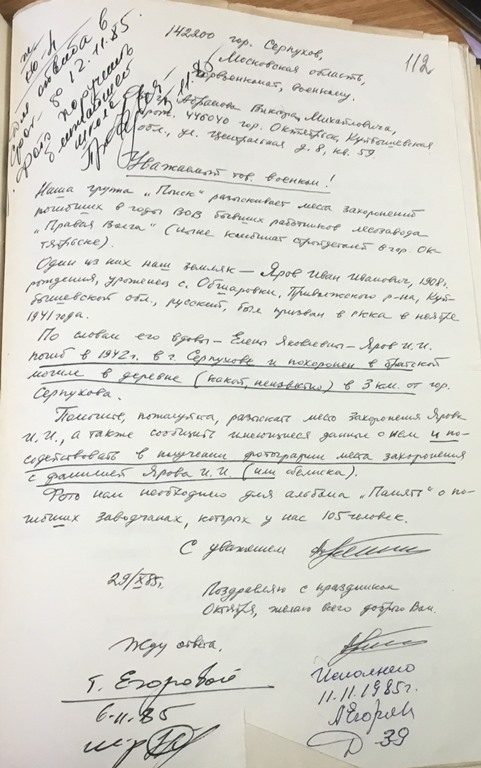 112
142200 гор. Серпухов,
Московская область,
Горвоенкомат, военкому.
Аврамова Виктора Михайловича,
прож. 446040 гор. Октябрьск, Куйбышевская
обл., ул. Центральная д. 8, кв. 59
для ответа в
срок до 12.11.85
Фото поручить
школе
11.85
Уважаемый тов. военком!
Наша группа „Поиск" разыскивает места захоронений
погибших в годы ВОВ бывших работников лесозавода
„Правая Волга" (ныне комбинат стройдеталей в гор. Ок-
тябрьске).
Один из них наш земляк – Яров Иван Иванович, 1908г.
рождения, уроженец с. Обшаровки, Приволжского р-на, Куй-
бышевской обл., русский, был призван в РККА в ноябре
1941 года.
По словам его вдовы – Елены Яковлевны – Яров И.И.
погиб в 1942г. в г. Серпухове и похоронен в братской
могиле в деревне (какой, неизвестно) в 3 км. от гор.
Серпухова.
Помогите, пожалуйста, разыскать место захоронения Ярова
И.И., а также сообщить имеющиеся данные о нем и по-
содействовать в получении фотографии места захоронения
с фамилией Ярова И.И. (или обелиска).
Фото нам необходимо для альбома „Память" о по-
гибших заводчанах, которых у нас 105 человек.
С уважением
29/X85г.
Поздравляю с праздником
Октября, желаю всего доброго Вам.
Жду ответа.
т. Егоровой
6.11.85
Исполнено
11.11.1985г.
Д-39